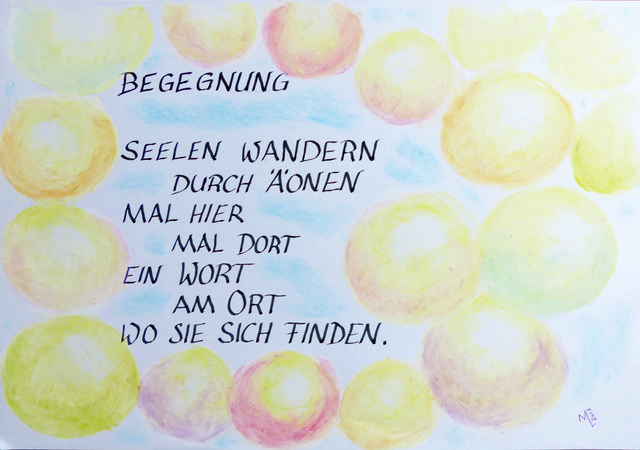 BEGEGNUNG
SEELEN WANDERN
DURCH ÄONEN
MAL HIER
MAL DORT
EIN WORT
AM ORT
WO SIE SICH FINDEN.